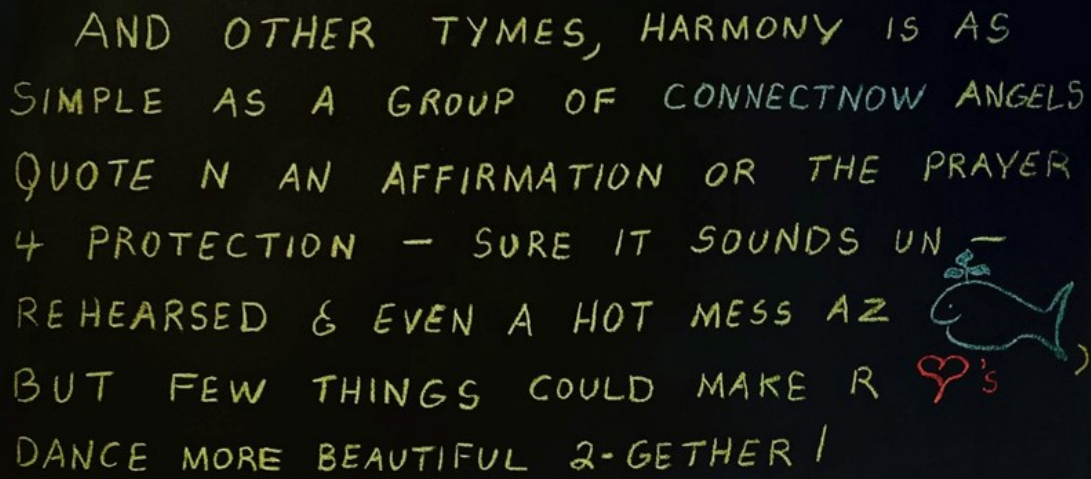 AND OTHER TYMES, HARMONY IS AS
SIMPLE AS A GROUP OF CONNECTNOW ANGELS
QUOTE N AN AFFIRMATION OR THE PRAYER
4 PROTECTION – SURE IT SOUNDS UN –
REHEARSED & EVEN A HOT MESS AZ ,
BUT FEW THINGS COULD MAKE R ♡'S
DANCE MORE BEAUTIFUL 2-GETHER !